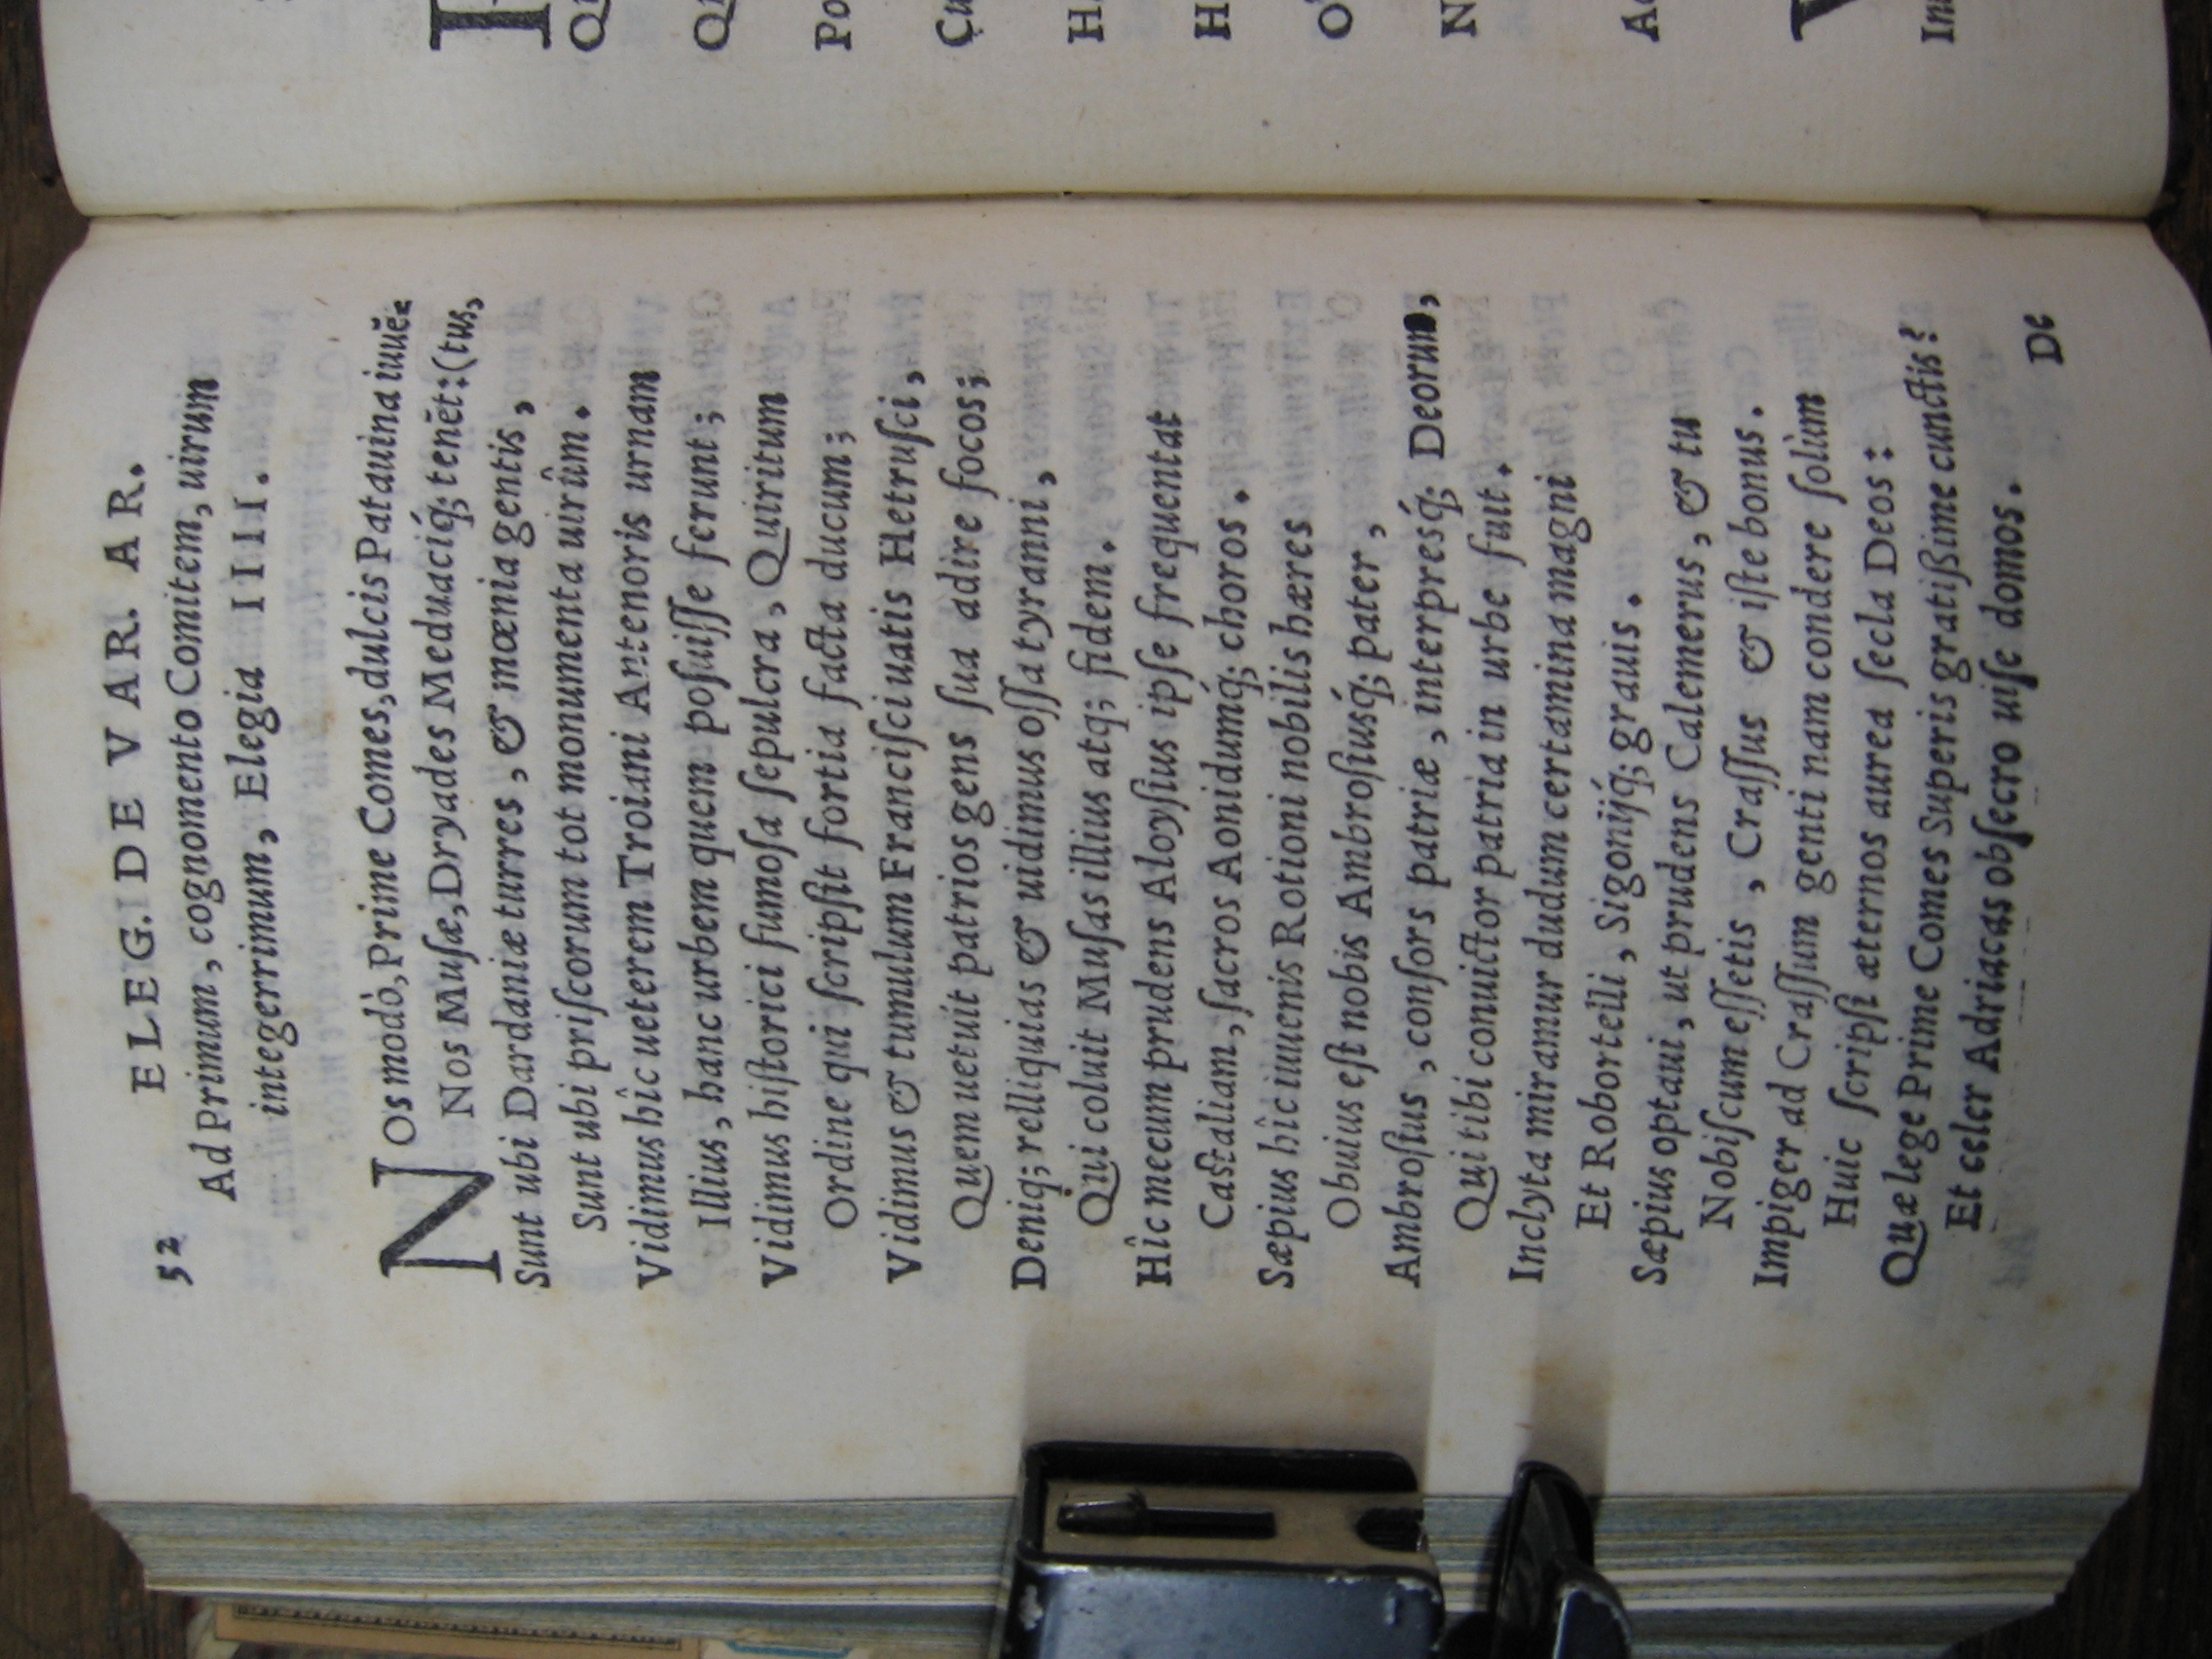 52
ELEG. DE VAR. AR.
Ad Primum, cognomento Comitem, uirum
integerrimum, Elegia IIII.
NOs modò, Prime Comes, dulcis Patauina iuuē⸗
Nos Musæ, Dryades Meduaciq́; tenēt: (tus,
Sunt ubi Dardaniæ turres, & mœnia gentis,
Sunt ubi priscorum tot monumenta uirûm.
Vidimus hîc ueterem Troiani Antenoris urnam
Illius, hanc urbem quem posuisse ferunt;
Vidimus historici fumosa sepulcra, Quiritum
Ordine qui scripsit fortia facta ducum;
Vidimus & tumulum Francisci uatis Hetrusci,
Quem uetuit patrios gens sua adire focos;
Deniq; relliquias & uidimus ossa tyranni,
Qui coluit Musas illius atq; fidem.
Hîc mecum prudens Aloysius ipse frequentat
Castaliam, sacros Aonidumq́; choros.
Sæpius hîc iuuenis Rotioni nobilis hæres
Obuius est nobis Ambrosiusq́; pater,
Ambrosius, consors patriæ, interpresq́; Deorum,
Qui tibi conuictor patria in urbe fuit.
Inclyta miramur dudum certamina magni
Et Robortelli, Sigonijq́; grauis.
Sæpius optaui, ut prudens Calemerus, & tu
Nobiscum essetis, Crassus & iste bonus.
Impiger ad Crassum genti nam condere solùm
Huic scripsi æternos aurea secla Deos:
Quæ lege Prime Comes Superis gratissime cunctis?
Et celer Adriacas obsecro uise domos.
De
Po
H
H
N